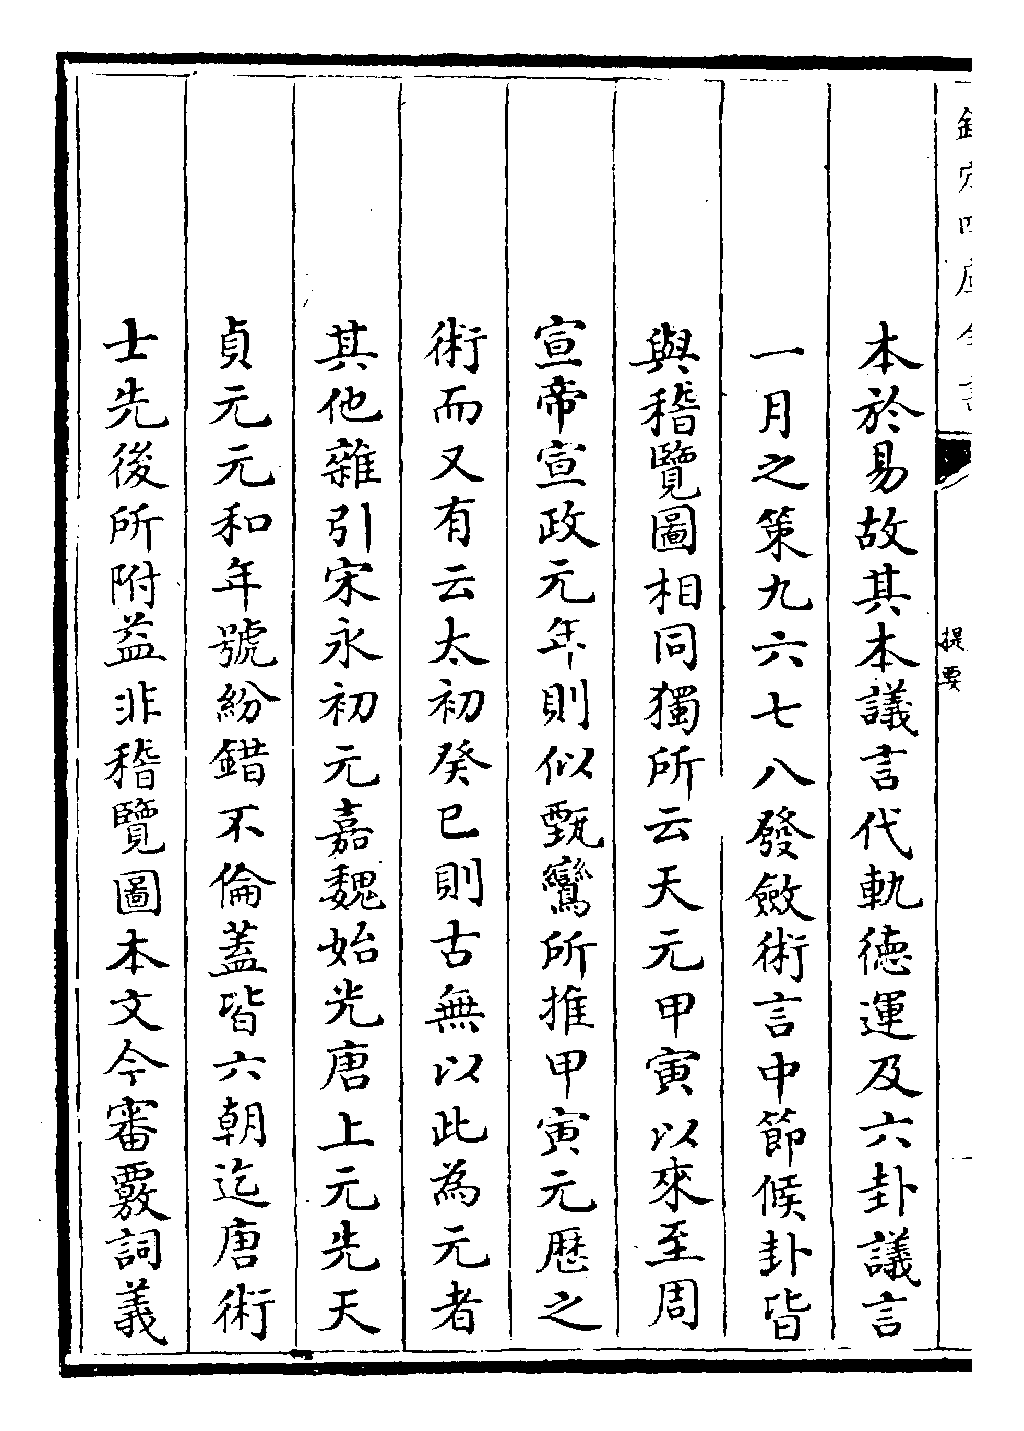 欽定四庫全書
提要
本於易故其本議言代軌德運及六卦議言
一月之策九六七八發斂術言中節候卦皆
與稽覽圖相同獨所云天元甲寅以來至周
宣帝宣政元年則似甄鸞所推甲寅元歴之
術而又有云太初癸巳則古無以此為元者
其他雜引宋永初元嘉魏始光唐上元先天
貞元元和年號紛錯不倫蓋皆六朝迄唐術
士先後所附益非稽覽圖本文今審覈詞義